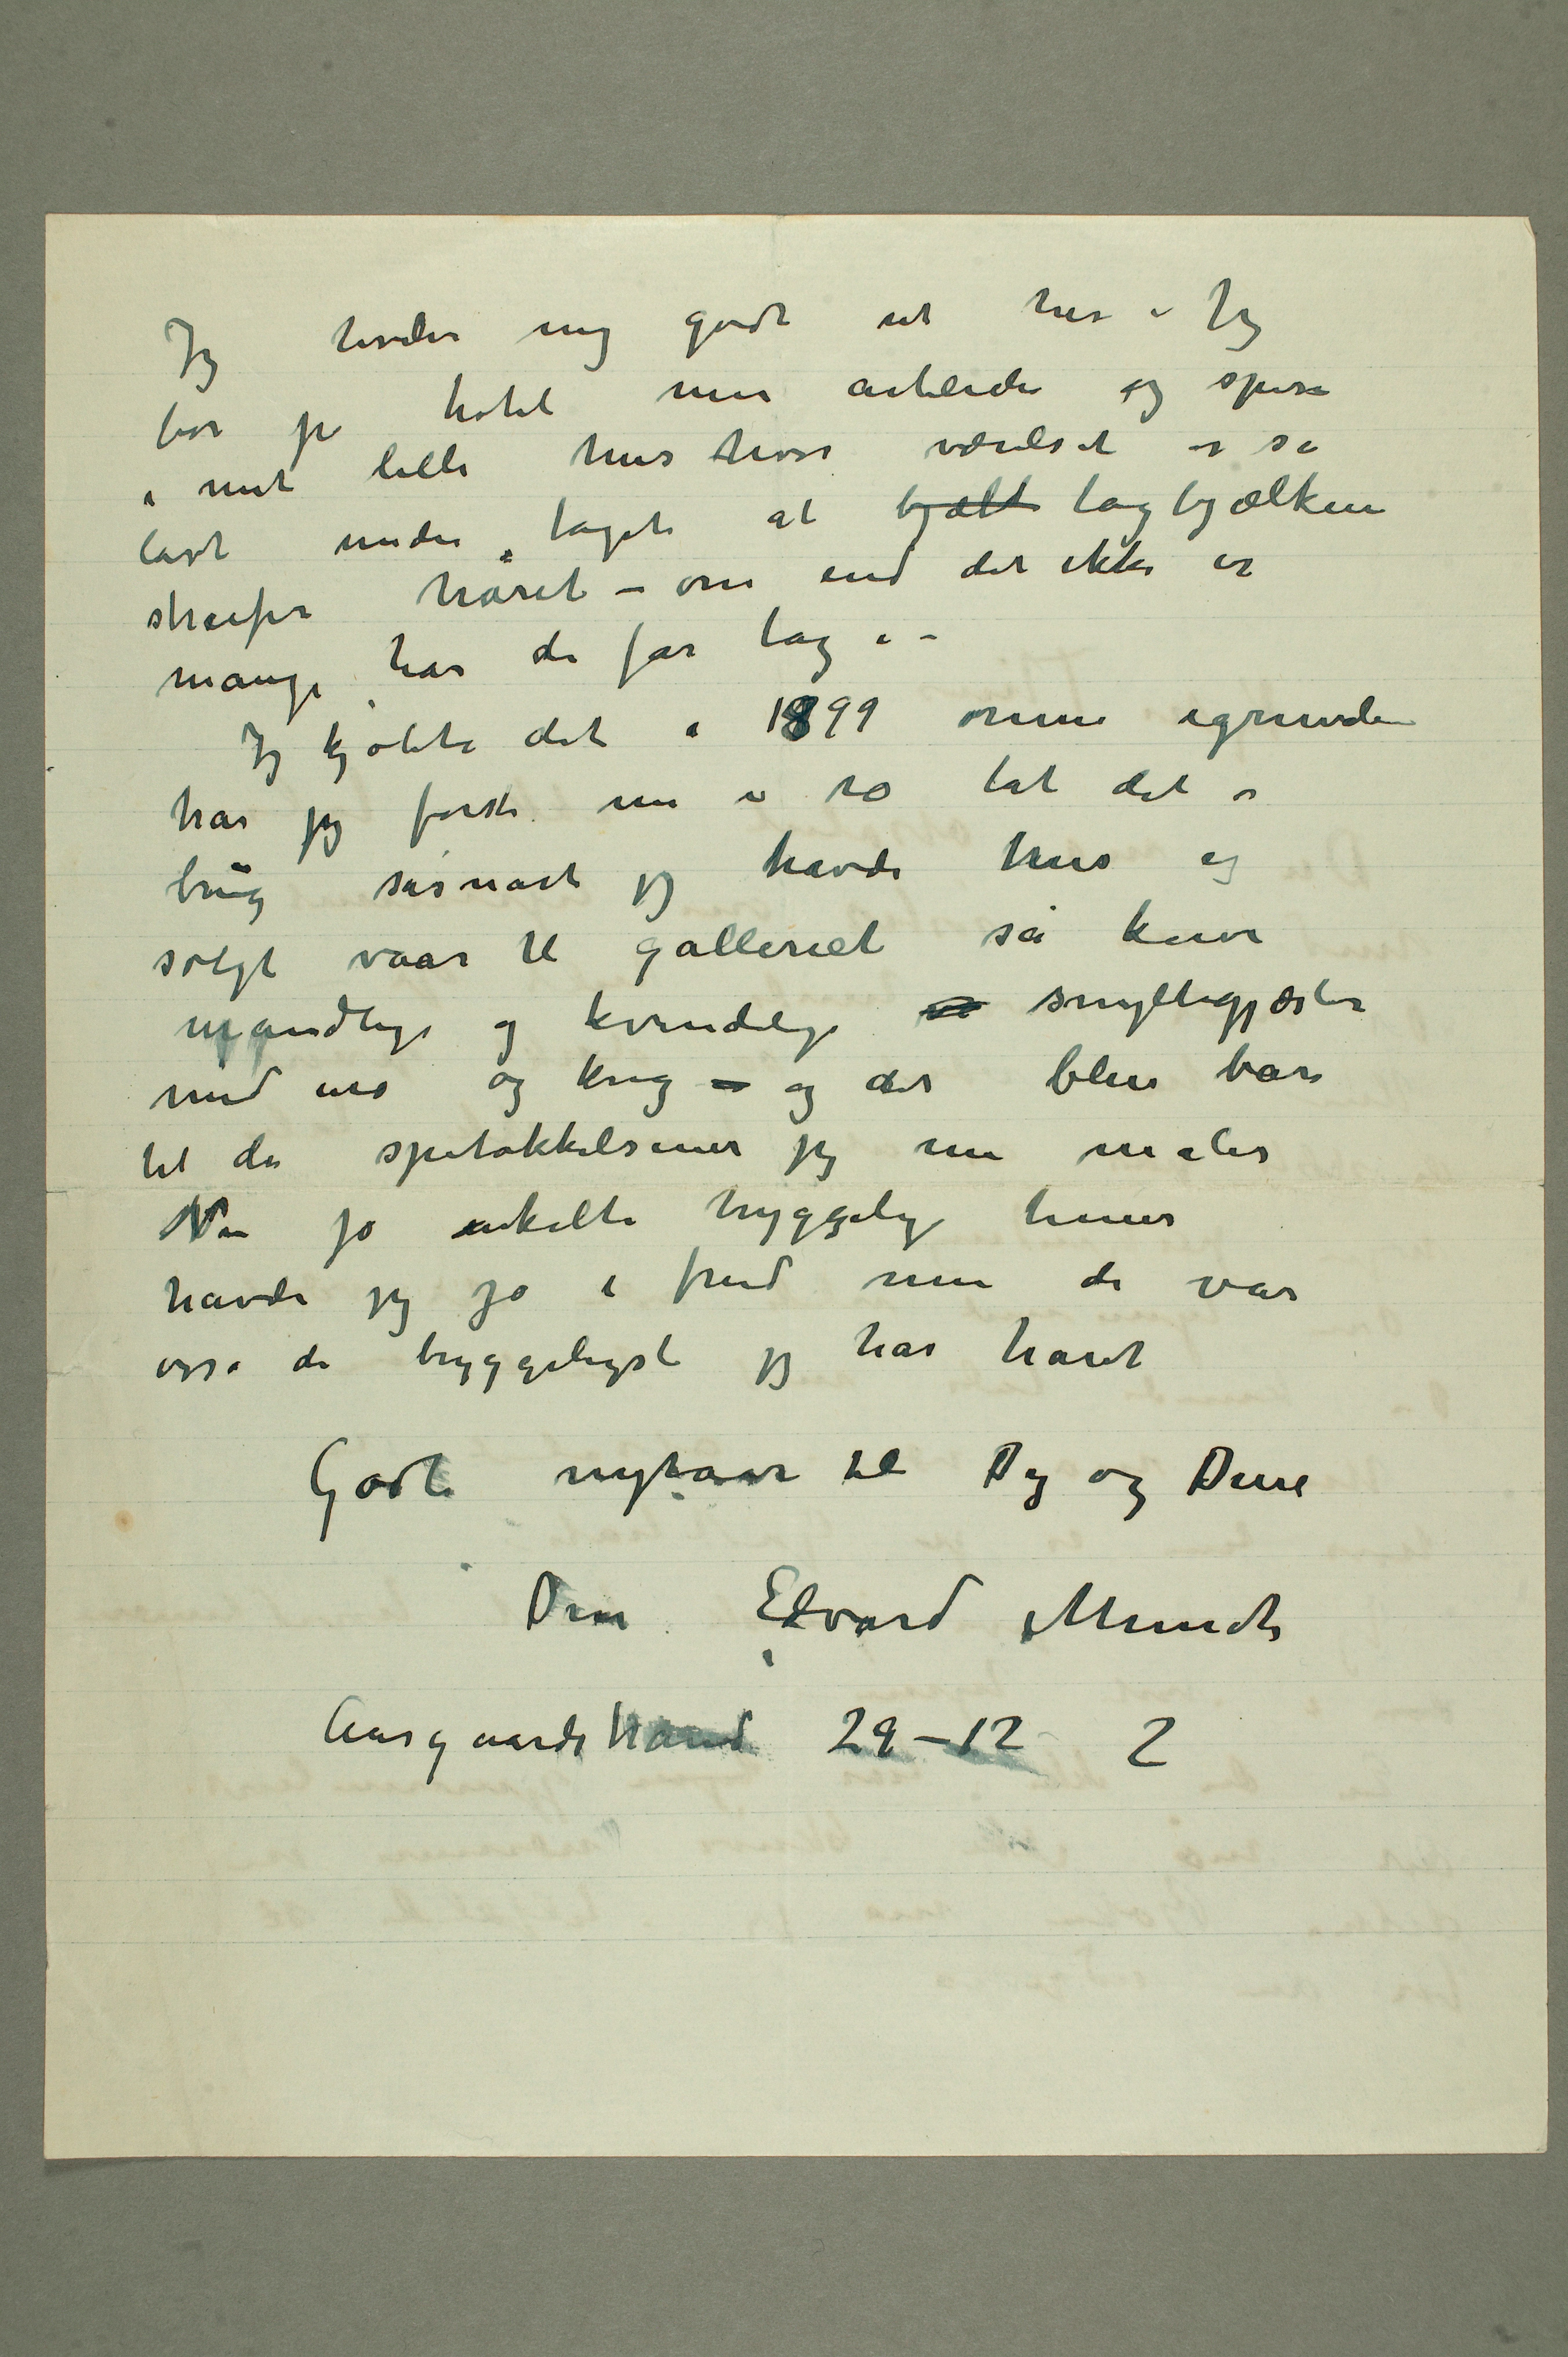 Jeg holder mig godt ut her – Jeg
bor på hotel men arbeider og spiser
i mit lille hus hvor værelset er så
lavt under taget at bjælk tagbjælkene
streifer håret – om end det ikke er
mange hår de får tag i –
Jeg kjøbte det i 1899 men igrunden
har jeg først nu i ro tat det i
brug såsnart jeg havde hus og
solgt vaar til galleriet så kom
mandlige og kvindelige snyltegjæster
med uro og krig – og det blev bare
til de spetakkelscener jeg nu maler
Nu jo enkelte hyggelige timer
havde jeg jo i fred men de var
også de hyggeligste jeg har havt
Godt nyttaar til Dig og Dine
Din Edvard Munch
Aasgaardstrand 29–12 2